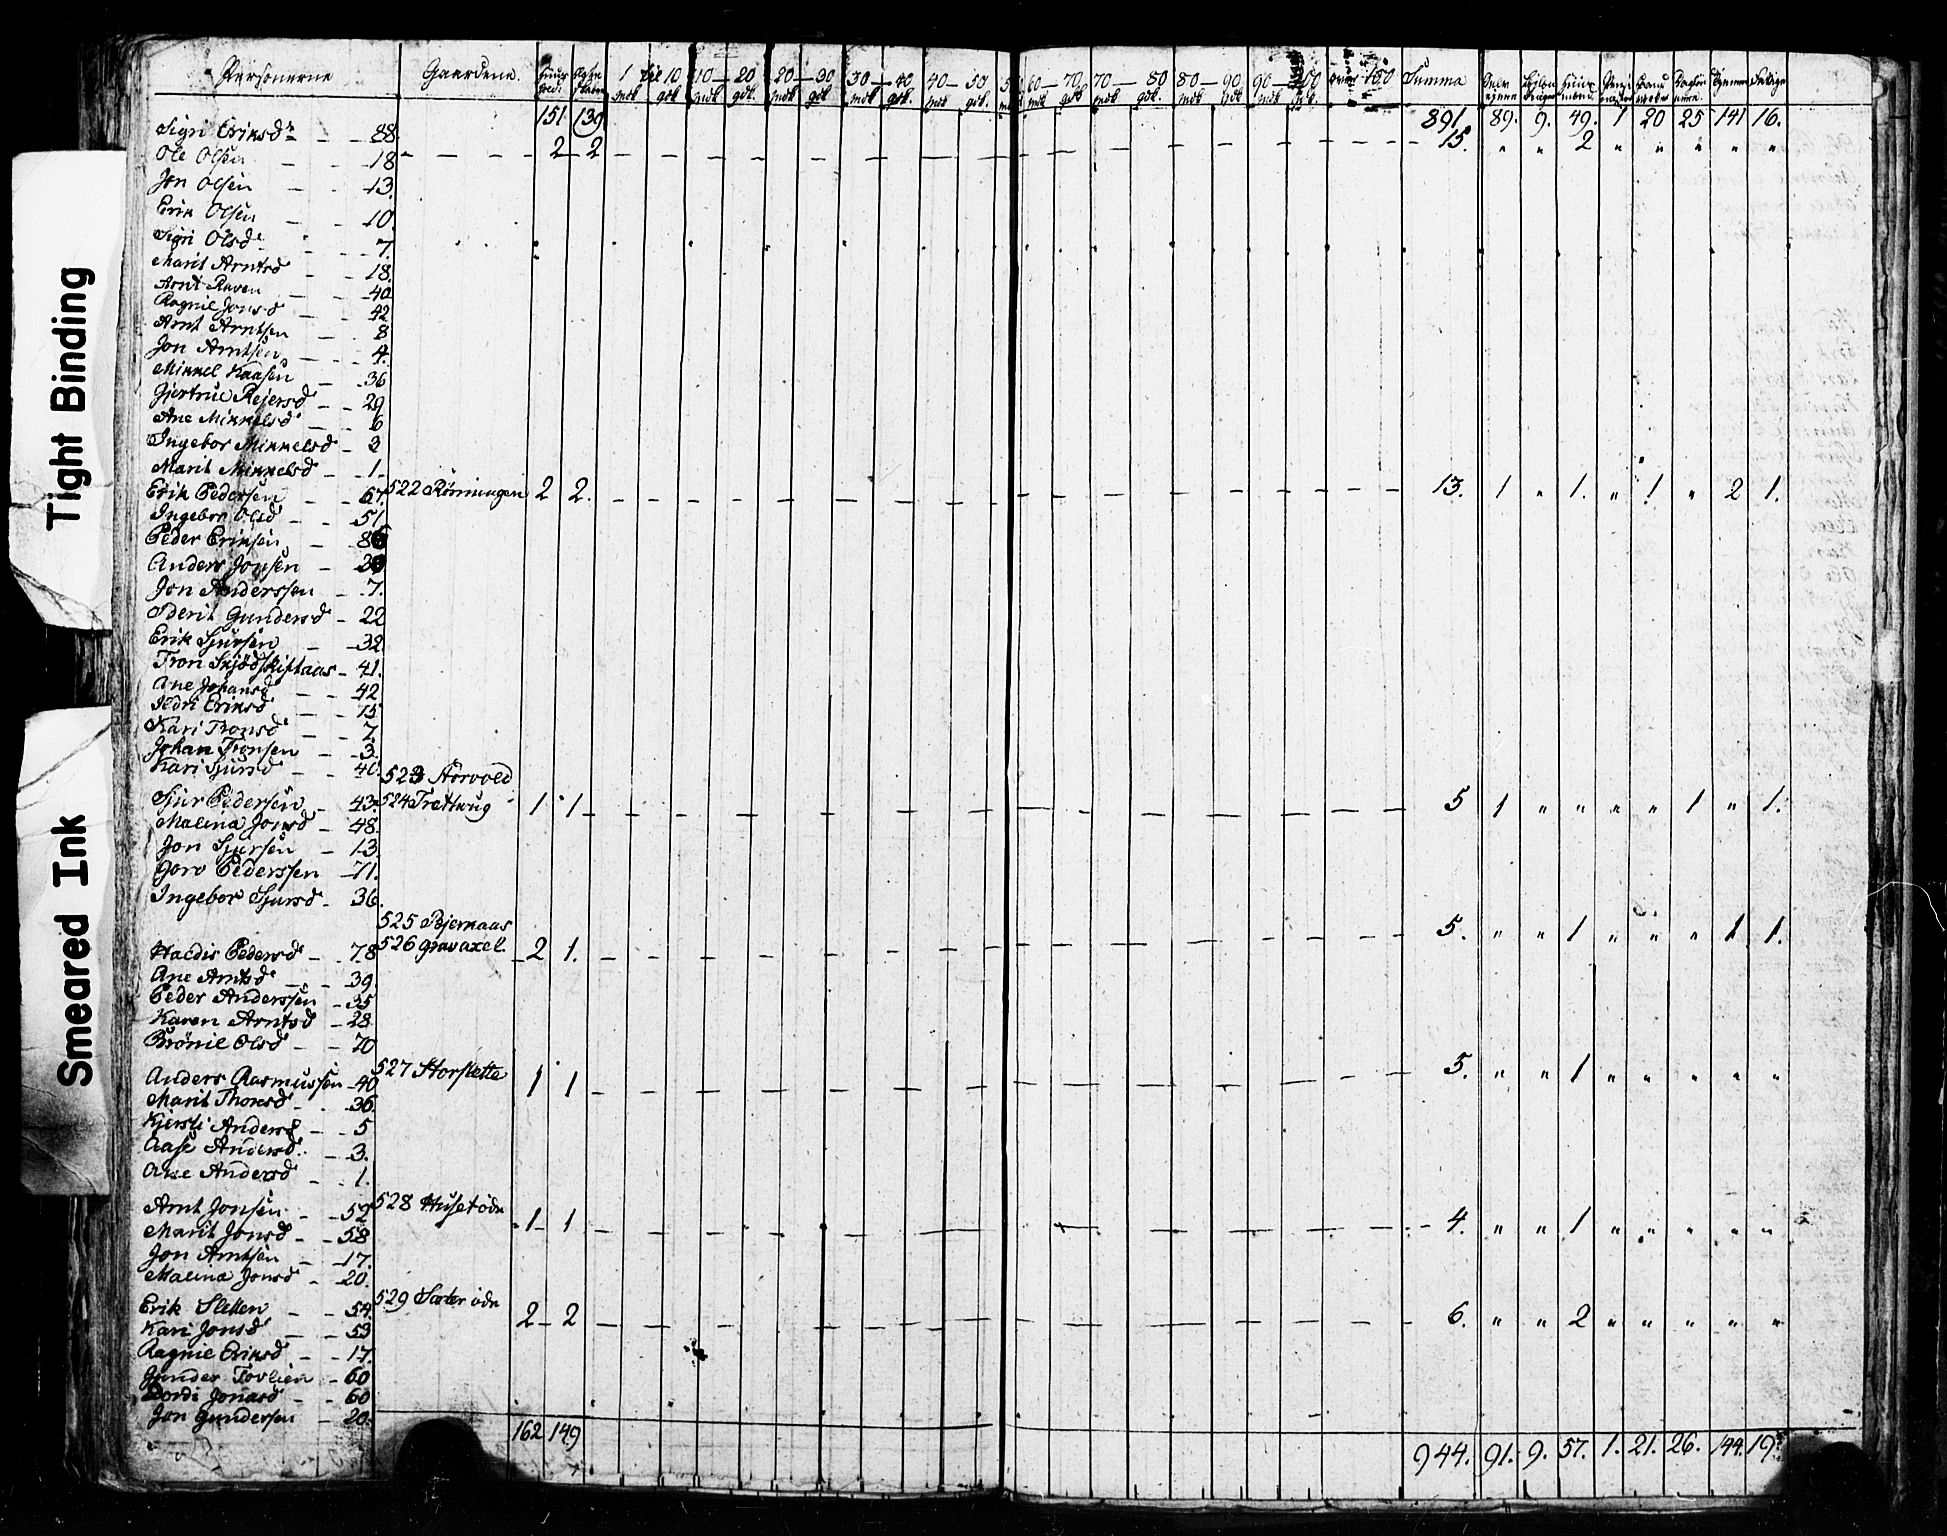 Tight Binding
Smeared Ink
Personerne Gaardene. 1 til 10 10 – 20 20 – 30 30 – 40 40 – 50 60 – 70 70 – 80 80 – 90 90 100 Summa
mdk gdk mdk gdk. mdk gdk mdk gdk. mdk gdk. mdk gdk mdk gdk. mdk gdk mdk
151 139 891. 89. 9. 49. 1 20 25 141 16.
Sigri Eriksd – – 88
Ole Olsen – – 18 – – – – 2 – 2 – – – 15. " " 2 " " " " "
Jon Olsen – – 13.
Erik Olsen – – 10.
Sigri Olsd – – 7.
Marit Arntsd – – 18.
Arnt Raven – – 40
Ragnil Jonsd – – 42
Arnt Arntsen – – 8
Jon Arntsen – – 4.
Mikkel Kaasen – 36
Gjertrue Reiersd – – 29
Ane Mikkelsd – – 6
Ingebor Mikkelsd – 3
Marit Mikkelsd – 1.
Erik Pedersen – 67. 522 Rönningen 2 2. – – – 13. 1 " 1. " 1 " 2 1.
Ingebor Olsd – – 51
Peder Eriksen – 8
Anders Jonsen – 3
Jon Anderssen – 7.
Berit Gundersd – 22
Erik Sjursen – 32.
Tron Skjödskiftaas – 41.
Ane Johansd – – 42
Sidri Eriksd – – 15
Kari Tronsd – – 7.
Johan Tronsen – 3.
Kari Sjursd – – 40. 523 Storvold
Sjur Pedersen – 43. 524 Trettvug 1 1 – – – 5 1 " " " " 1 " 1.
Malina Jonsd – 48.
Jon Sjursen – 13.
Goro Pederssen – 71.
Ingebor Sjursd – 36.
525 Bjernaas
Haldis Pedersd – 78 526 Gravaxel – 2 1. – – – 5. " " 1 " " " 1 1.
Ane Arntsd – – 39.
Peder Anderssen – 35
Karen Arntsd – 28
Brönil Olsd – – 70
Anders Rasmussen – 40 527 Storslette 1 1 – – – 5. " " 1 " " " " "
Marit Thorsd – . 36.
Kjersti Andersd – – 5
Aase Andersd. – 3.
Ane Andersd – . 1.
Arnt Jonsen – – 52 528 Husetöde – 1 – 1 – – – 4. " " 1 " " " " "
Marit Jonsd – – 58
Jon Arntsen – – 17.
Malina Jonsd – 20.
Erik Sletten – – 54. 529 Sæter öde 2 – 2 – – – 6. " " 2 " " " " "
Kari Jonsd – – 53
Ragnil Eriksd – – 17.
Gunder Tovlien – 60
Dordi Jonasd – – 60
Jon Gundersen – 20.
162 149 944. 91. 9. 57. 1. 21. 26. 144. 19.